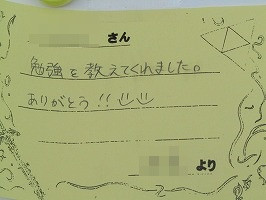 さん
勉強を教えてくれました。
ありがとう!!
より